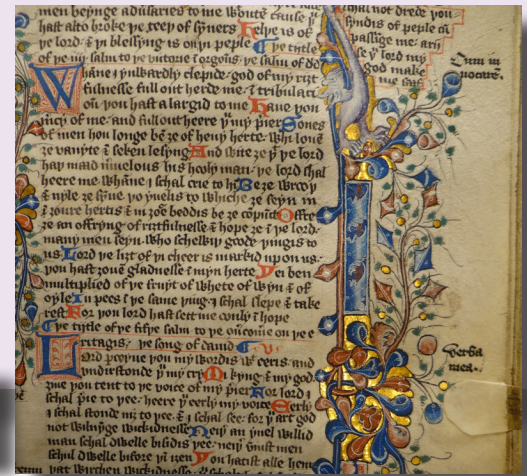 men beynge aduersaries to me wiþoute cause þu
hast alto broke þe teeþ of synners Helþe is of
þe lord: & þi blessyng is on þi peple ¶ þe title
of þe iiij salm to þe victorie i orgons: þe salm of dd
Whane i ynwardly clepide: god of my riȝt
fulnesse full out herde me: i tribulaci
on þou hast alargid to me Haue þou
mercy of me: and full out heere þu my prier Sones
of men hou longe be ȝe of heuy herte: whi loue
ȝe vanyte & seken lesyng And wite ȝe þt þe lord
haþ maad merueilous his hooly man: þe lord shal
heere me whane i schal crie to hi Be ȝe wrooþ
& nyle ȝe synne þo þingis to whiche ȝe seyn in
ȝoure hertis & in ȝoure beddis be ȝe copunct Offre
ȝe an offryng of riȝtfulnesse & hope ȝe i þe lord:
many men seyn who schewiþ goode þingis to
us Lord þe liȝt of þi cheer is markid upon us:
þou hast ȝoue gladnesse i myn herte Þei ben
multiplied of þe fruyt of whete of wyn & of
oyle I pees i þe same þing: i schal slepe & take
rest For þou lord hast set me oonly i hope
¶ þe title of þe fifþe salm to þe oucome on þe e
ritagis: þe song of dauid ¶ v
Lord perceyue þou my wordis wt eeris: and
vndirstonde þu my cry My kyng: & my god
ȝiue þou tent to þe voice of my prier For lord i
schal prie to þee: heere þu eerly my voice Eerly
i schal stonde niȝ to þee: & i schal see: for þu art god
not willynge wickidnesse Neiþer an yuel willid
man schal dwelle bisidis þee: neiþer vniust men
schul dwelle bifore þi iȝen Þou hatist alle hem
þat worchen wickidnesse
schal not drede þou
syndis of peple cu
passinge me: arise
se þu lord my
god make
me saf
Cum in
uocare.
Verba
mea.